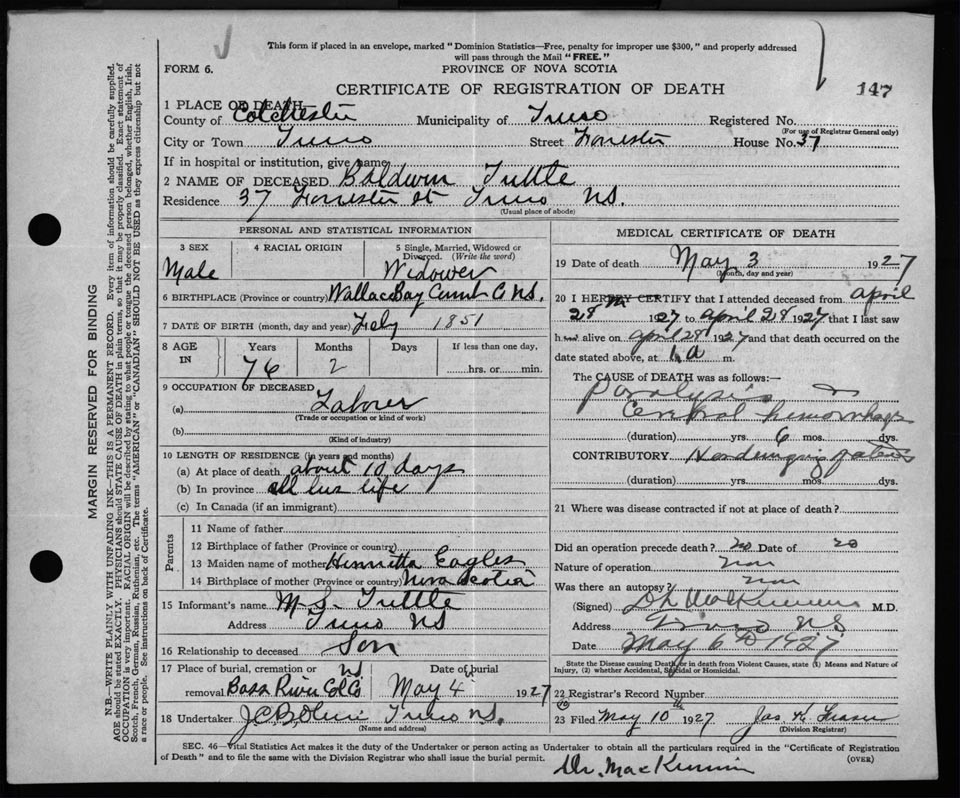 This form if placed in an envelope, marked "Dominion Statistics—Free, penalty for improper use $300," and properly addressed
will pass through the Mail "FREE."
FORM 6.
PROVINCE OF NOVA SCOTIA
CERTIFICATE OF REGISTRATION OF DEATH
147
1 PLACE OF DEATH
County of Colchester Municipality of Truro Registered No.
(For use of Registrar General only)
City or Town Truro Street Forrester House No. 37
If in hospital or institution, give name
2 NAME OF DECEASED Baldwin Tuttle
Residence 37 Forrester St Truro NS.
(Usual place of abode)
PERSONAL AND STATISTICAL INFORMATION
3 SEX 4 RACIAL ORIGIN 5 Single, Married, Widowed or Divorced. (Write the word)
Male Widower
6 BIRTHPLACE (Province or country) Wallace Bay Cumb Co NS.
7 DATE OF BIRTH (month, day and year) 1851
8 AGE IN Years Months Days If less than one day,
76 2 hrs. or min.
9 OCCUPATION OF DECEASED
(a) Laborer
(Trade or occupation or kind of work)
(b)
(Kind of industry)
10 LENGTH OF RESIDENCE (in years and months)
(a) At place of death about 10 days
(b) In province all his life
(c) In Canada (if an immigrant)
Parents
11 Name of father
12 Birthplace of father (Province or country)
13 Maiden name of mother Henrietta Eagles
14 Birthplace of mother (Province or country) Nova Scotia
15 Informant's name M. S. Tuttle
Address Truro NS
16 Relationship to deceased Son
17 Place of burial, cremation or removal Bass River Col Co. NS Date of burial May 4 1927
18 Undertaker Truro NS.
(Name and address)
MEDICAL CERTIFICATE OF DEATH
19 Date of death May 3 1927
(Month, day and year)
20 I HEREBY CERTIFY that I attended deceased from April
28 1927 to April 28 1927 that I last saw
h alive on April 28 1927 and that death occurred on the
date stated above, at 1 a m.
The CAUSE of DEATH was as follows:—
Paralysis
hemorrhage
(duration) yrs. 6 mos. dys.
CONTRIBUTORY
(duration) yrs. mos. dys.
21 Where was disease contracted if not at place of death?
Did an operation precede death? no Date of no
Nature of operation non
Was there an autopsy? non
(Signed) MacKinnon M.D.
Address Truro NS
Date May 6th 1927
State the Disease causing Death, or in death from Violent Causes, state (1) Means and Nature of
Injury, (2) whether Accidental, Suicidal or Homicidal.
22 Registrar's Record Number
23 Filed May 10th 1927 Jas K. Fraser
(Division Registrar)
SEC. 46—Vital Statistics Act makes it the duty of the Undertaker or person acting as Undertaker to obtain all the particulars required in the "Certificate of Registration
of Death" and to file the same with the Division Registrar who shall issue the burial permit.
(OVER)
Dr. MacKinnon
MARGIN RESERVED FOR BINDING
N.B.—WRITE PLAINLY WITH UNFADING INK—THIS IS A PERMANENT RECORD. Every item of information should be carefully supplied.
AGE should be stated EXACTLY. PHYSICIANS should STATE CAUSE OF DEATH in plain terms, so that it may be properly classified. Exact statement of
OCCUPATION is very important. RACIAL ORIGIN will be described by stating to what people or tongue the deceased person belonged, whether English, Irish,
Scotch, French, German, Russian, Ruthenian, etc. The terms "AMERICAN" or "CANADIAN" SHOULD NOT BE USED as they express citizenship but not
a race or people. See instructions on back of Certificate.